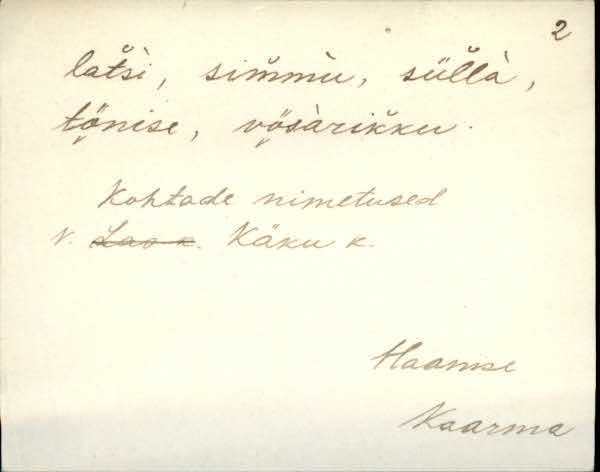 2
latši, simmu, süĺĺà,
tö̬nise, vö̬sàrikku.
Kohtade nimetused
v. Lao k. Käku k.
Haamse
Kaarma